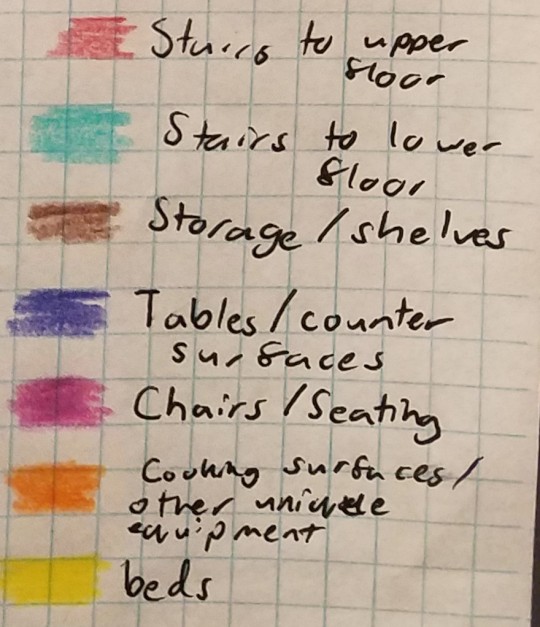 Stairs to upper
floor
Stairs to lower
floor
Storage / shelves
Tables / counter
surfaces
Chairs / Seating
Cooking surfaces /
other uniqude
equipment
beds